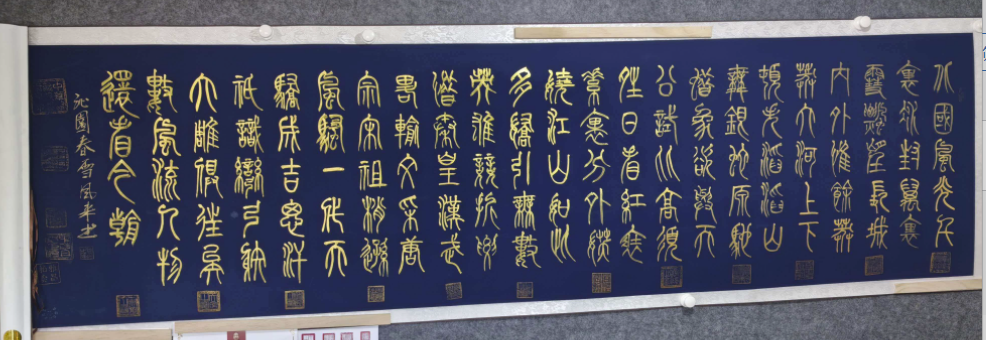 北國風光千
里冰封萬里
雪飄望長城
內外惟餘莽
莽大河上下
頓失滔滔山
舞銀蛇原馳
蠟象欲與天
公試比高須
晴日看紅裝
素裹分外妖
嬈江山如此
多嬌引無數
英雄競折腰
惜秦皇漢武
略輸文采唐
宗宋祖稍遜
風騷一代天
驕成吉思汗
祇識彎弓射
大雕俱往矣
數風流人物
還看今朝
沁園春雪